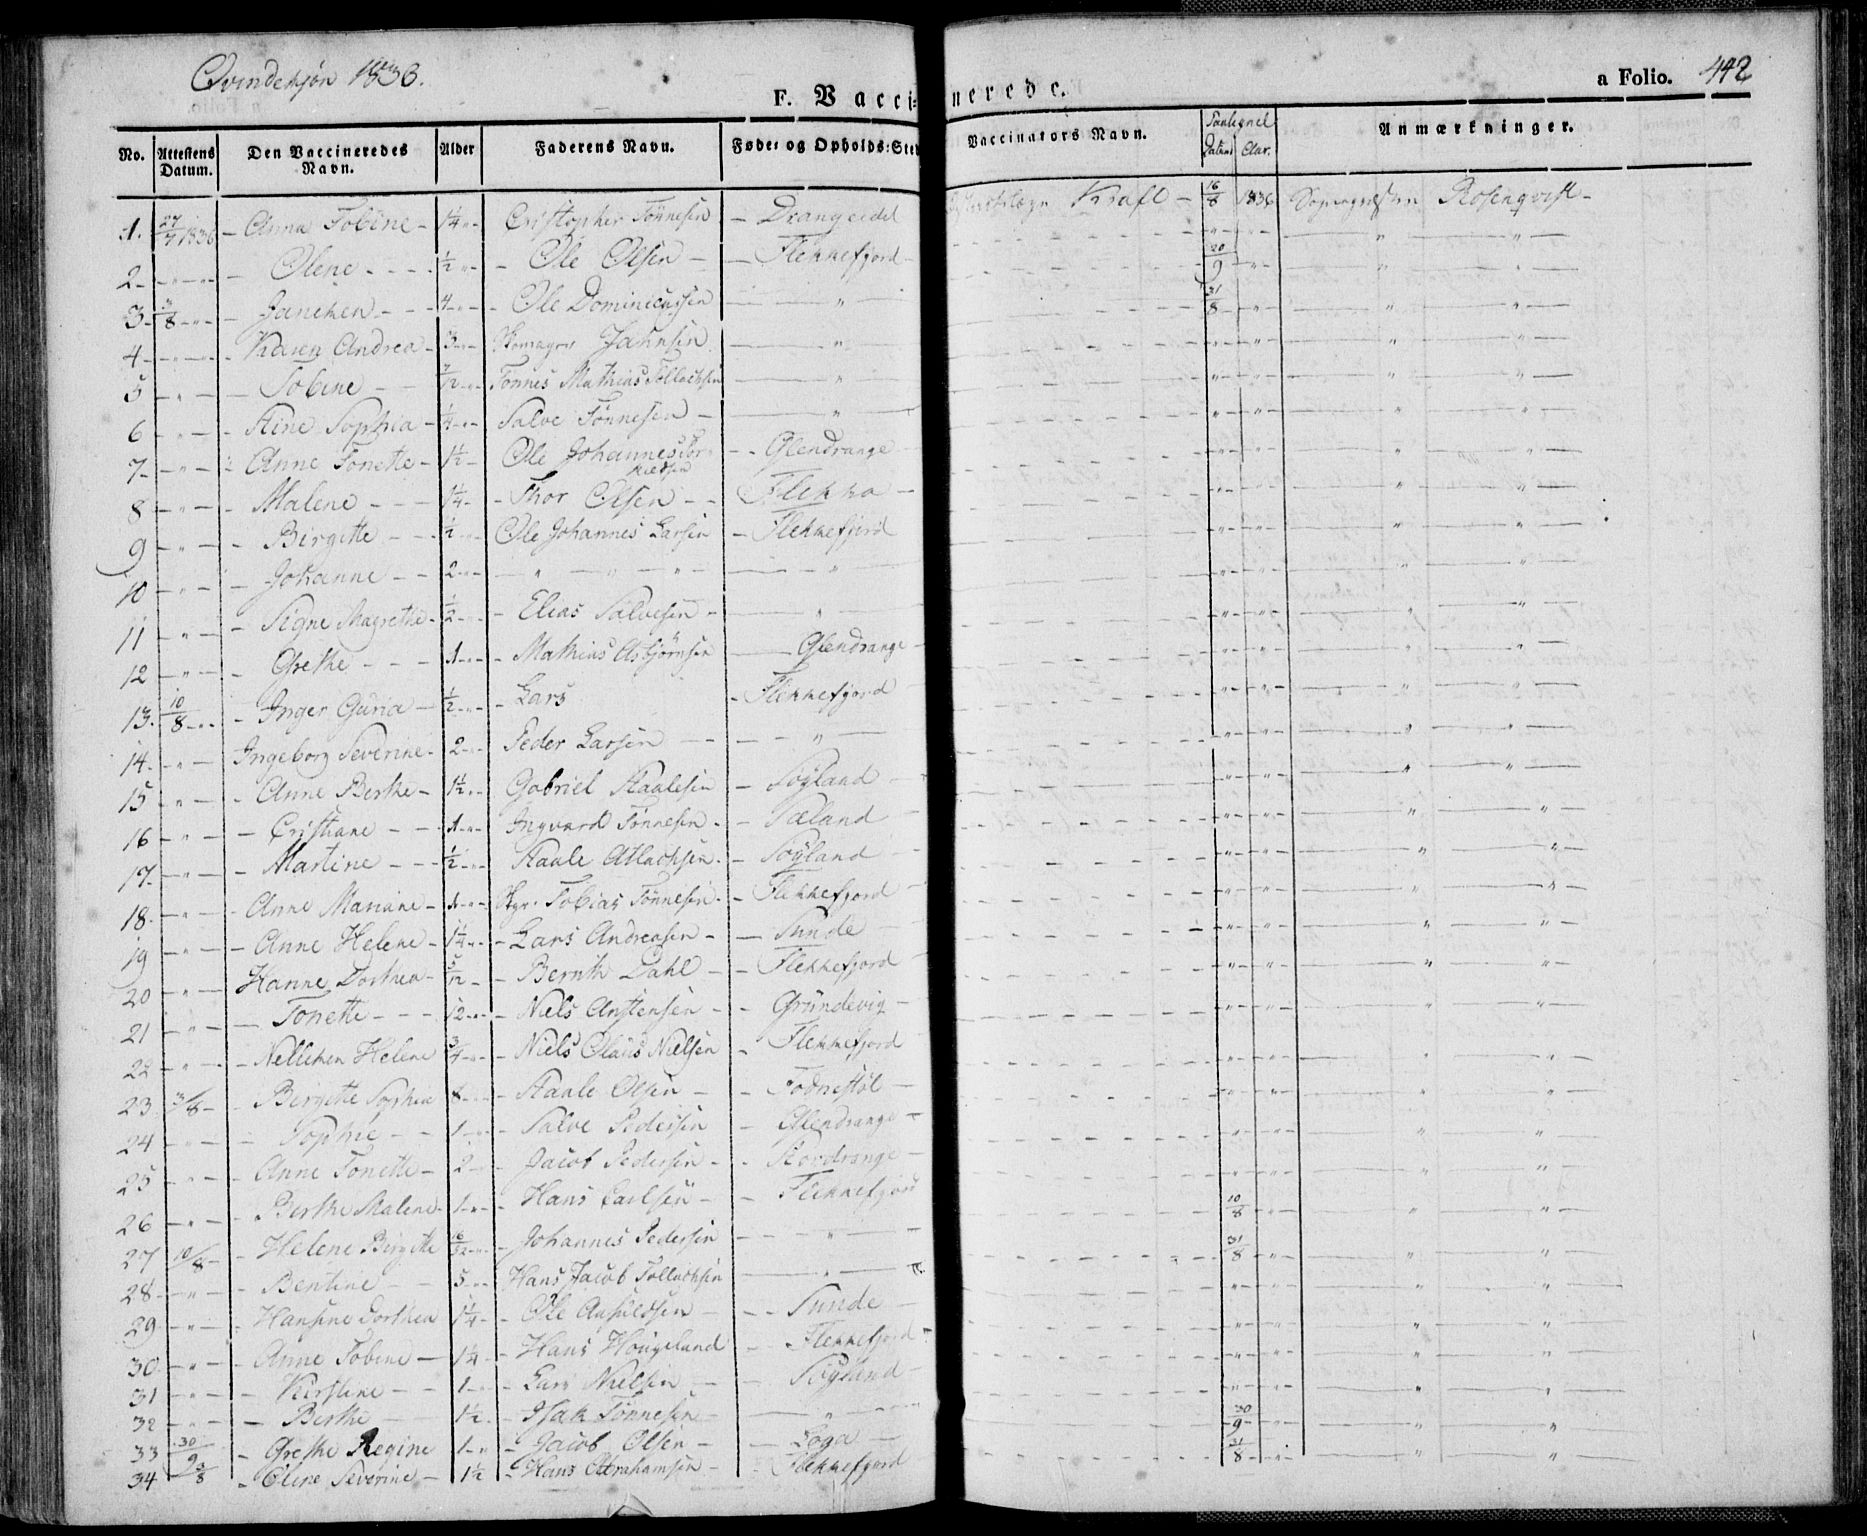 Qvindekjøn 1836.
F. Vaccinerede.
a Folio. 442
No. Attestens Datum. Den Vaccineredes Navn. Alder Faderens Navn. Føde- og Opholds-Sted Vaccinators Navn. Datum Anmærkninger.
1. 27/7 1836 - Anna Tobine - 1/4 - Cristopher Tønnesen - Drangeidet Kraft - 16/8 1836 Rosenqvist -
2 - " - Olene - 1/2 - Ole Olsen - Flekkefjord - " - 20/9 - " - " - "
3 - 3/8 - " - Janiken - 4 - " - Ole Dominicussen - " - 31/8 - " - " - "
4 - " - Karen Andrea - 3 - " Skomager Jahnsen - " - " - " - " - "
5 - " - Tobine - 7/12 - " Tønnes Mathias Tollachsen - " - " - " - " - "
6 - " - Stine Sophia - 1/4 - " Salve Tønnesen - " - " - " - " - "
7 - " - Anne Tonette - 1 1/2 - Ole Johannes Torkildsen - Glendrange - " - " - " - "
8 - " - Malene - 1 1/4 - Thor Olsen - Flikka - " - " - " - "
9 - " - Birgitte - 1/2 - Ole Johannes Larsen - Flekkefjord - " - " - " - "
10 - " - Johanne - 2 - " - " - " - " - " - " - " - " - "
11 - " - Signe Magrethe - 1/2 - " - Elias Salvesen - " - " - " - " - "
12 - " - Grethe - 1 - " - Mathias Asbjørnsen - Glendrange - " - " - " - "
13. 10/8 - " - Inger Guria - 1/2 - " - Lars - Flekkefjord - " - " - " - "
14. - " - Ingeborg Severine - 2 - " Peder Larsen - " - " - " - " - "
15 - " - Anne Berthe - 1 1/2 - " Gabriel Staalesen - Søyland - " - " - " - "
16 - " - Cristiane - 1 - " Ingvard Tønnesen - Sæland - " - " - " - "
17. - " - Martine - 1/2 - " Staale Atlachsen - Søyland - " - " - " - "
18. - " - Anne Mariane - 1 - " Tobias Tønnesen - Flekkefjord - " - " - " - "
19 - " - Anne Helene - 1 1/4 - " - Lars Andreasen - Sunde - " - " - " - "
20 - " - Hanne Dorthea - 5/12 - Bernth Dahl - Flekkefjord - " - " - " - "
21 - " - Tonette - 12 - " - Niels Anstensen - Gründevig - " - " - " - "
22 - " - Nelliken Helene 3/4 - " - Niels Olaus Nielsen - Flekkefjord - " - " - " - "
23 3/8 - Birgitte Sophia 8 - " - Staale Olsen - - " - " - " - "
24 - " - Sophie - 1 - " - Salve Pedersen - Glendrange - " - " - " - "
25 - " - Anne Tonette - 2 - Jacob Pedersen - Stordrange - " - " - " - "
26 - " - Berthe Malene - 1 - " - Hans Carlsen - Flekkefjord 10/8 - " - " - "
27 10/8 - Helene Birgitte - " - Johannes Pedersen - " - 31/8 - " - " - "
28 - " - Bentine - 5 - " - Hans Jacob Tollachsen - " - " - " - " - "
29 - " - Hansine Dorthea 1 1/4 - Ole - Sunde - " - " - " - "
30 - " - Anne Tobine - 1 1/4 - Hans Hougeland - Flekkefjord - " - " - " - "
31 - " - Kirstine - 1 - " - Lars Nielsen - Søyland - " - " - " - "
32 - " - Berthe - 1 1/2 - Isak Tønnesen - " - 30/9 - " - " - "
33 30/9 - Grethe Regine 1 - " - Jacob Olsen - Loga - 31/8 - " - " - "
34 3/8 - Oline Severine - 1 1/2 - Hans Abrahamsen - Flekkefjord - " - "